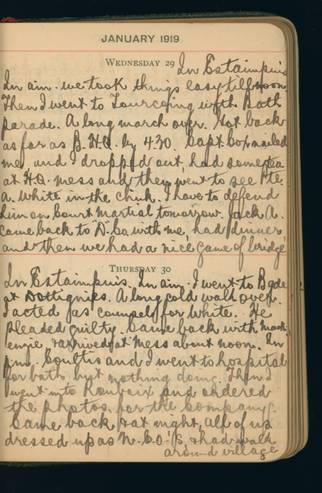 JANUARY 1919
WEDNESDAY 29 In Estaimpuis
In a.m. we took things easy till noon.
Then I went to Tourcoing with Bath
parade. A long march over. Got back
as far as B.H.Q. by 4.30. Capt. Cox nailed
me and I dropped out, had some tea
at H.Q. mess and then went to see Pte.
A. White in the clink. I have to defend
him on Court Martial tomorrow. Jack A.
came back to D. Co with me, had dinner
and then we had a nice game of bridge
THURSDAY 30
In Estaimpuis. In a.m. I went to Bgde
at Dottignies. A long cold walk over.
I acted as counsel for White. He
pleaded guilty. Came back with Mack
enzie, arrived at mess about noon. In
p.m. Coultis and I went to hospital
for bath but nothing doing. Then I
went into Roubaix and ordered
the photos for the company.
Came back at night, all of us
dressed up as N.C.O.'s & had walk
around village